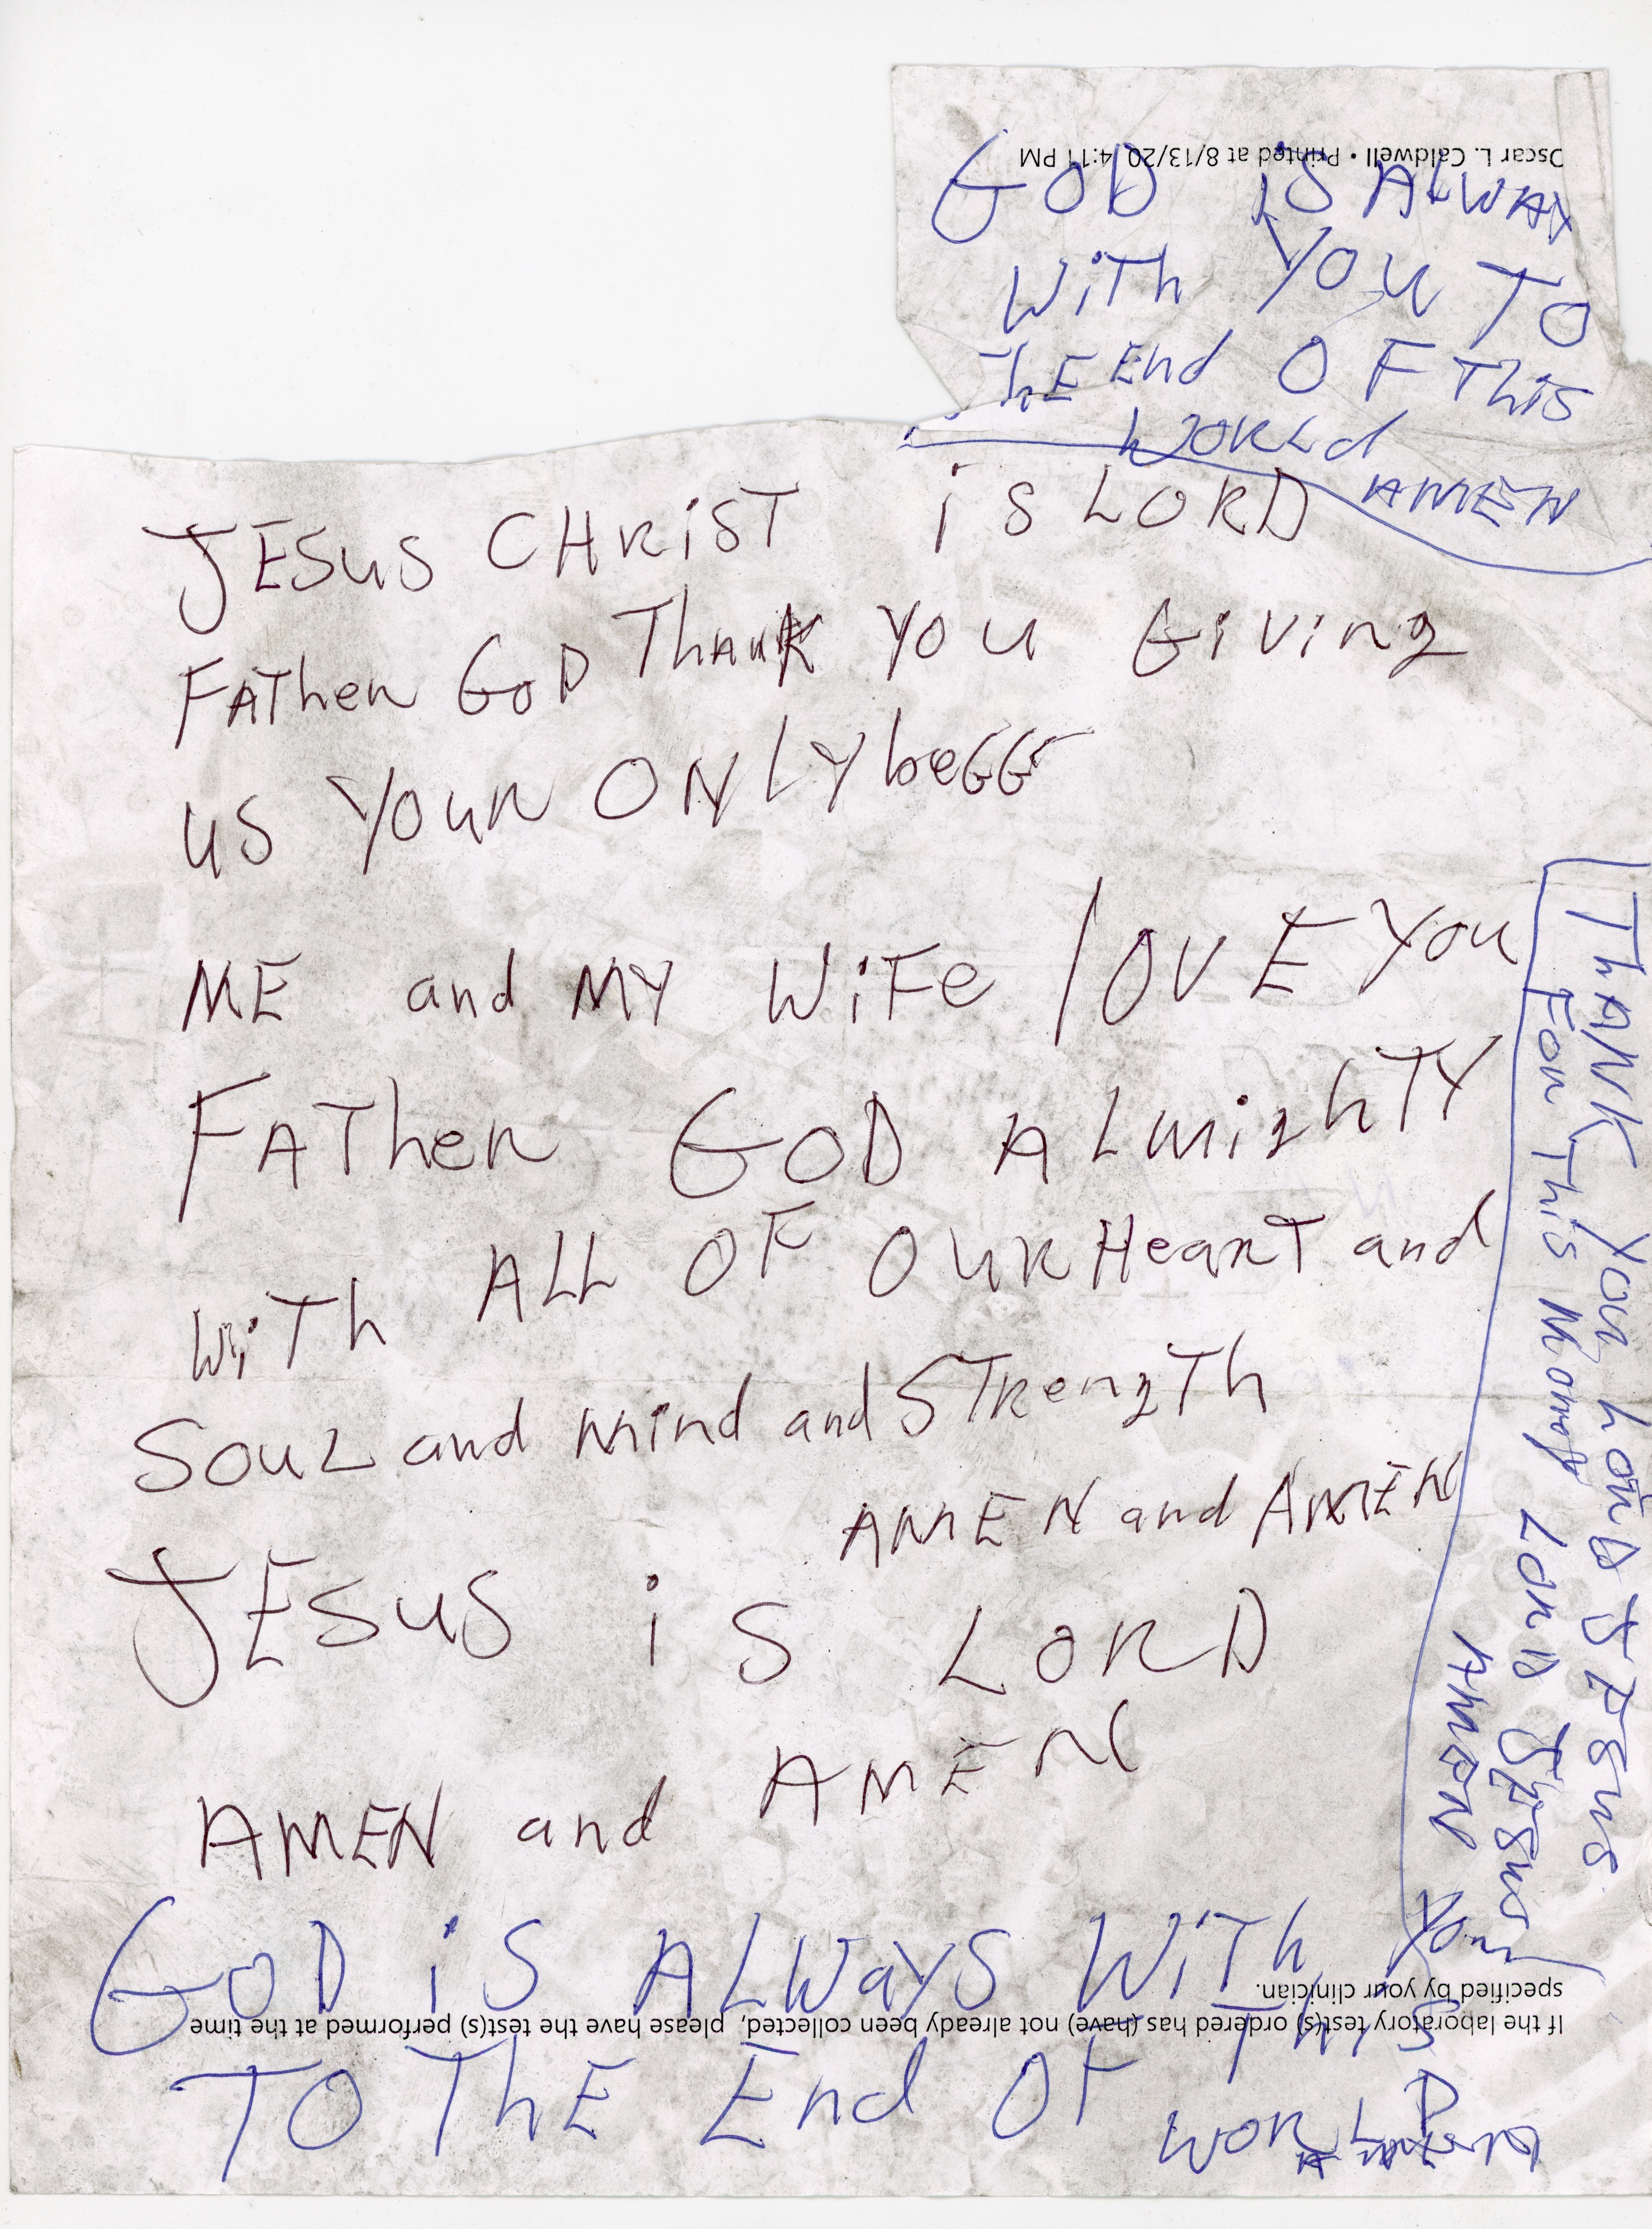 Oscar L. Caldwell • Printed at 8/13/20 4:11 PM
GOD iS ALWAY
WiTh YOU TO
ThE End OF This
WORLd
AMEN
JESUS CHRiST iS LORD
FATher GOD ThAnK YOU GiVing
US YOUR ONLY beGG
ME and MY WiFe lOVE You
FATher GOD ALmighTY
WiTh ALL OF OUR HearT and
SOUL and mind and STRengTh
AMEN and AMEN
JESUS iS LORD
AMEN and AMEN
ThANK You LORD JESUS
For This Money LORD JESUS
AMEN
GOD iS ALWaYS WiTh You
specified by your clinician.
If the laboratory test(s) ordered has (have) not already been collected, please have the test(s) performed at the time
TO ThE End OF ThiS
WORLD